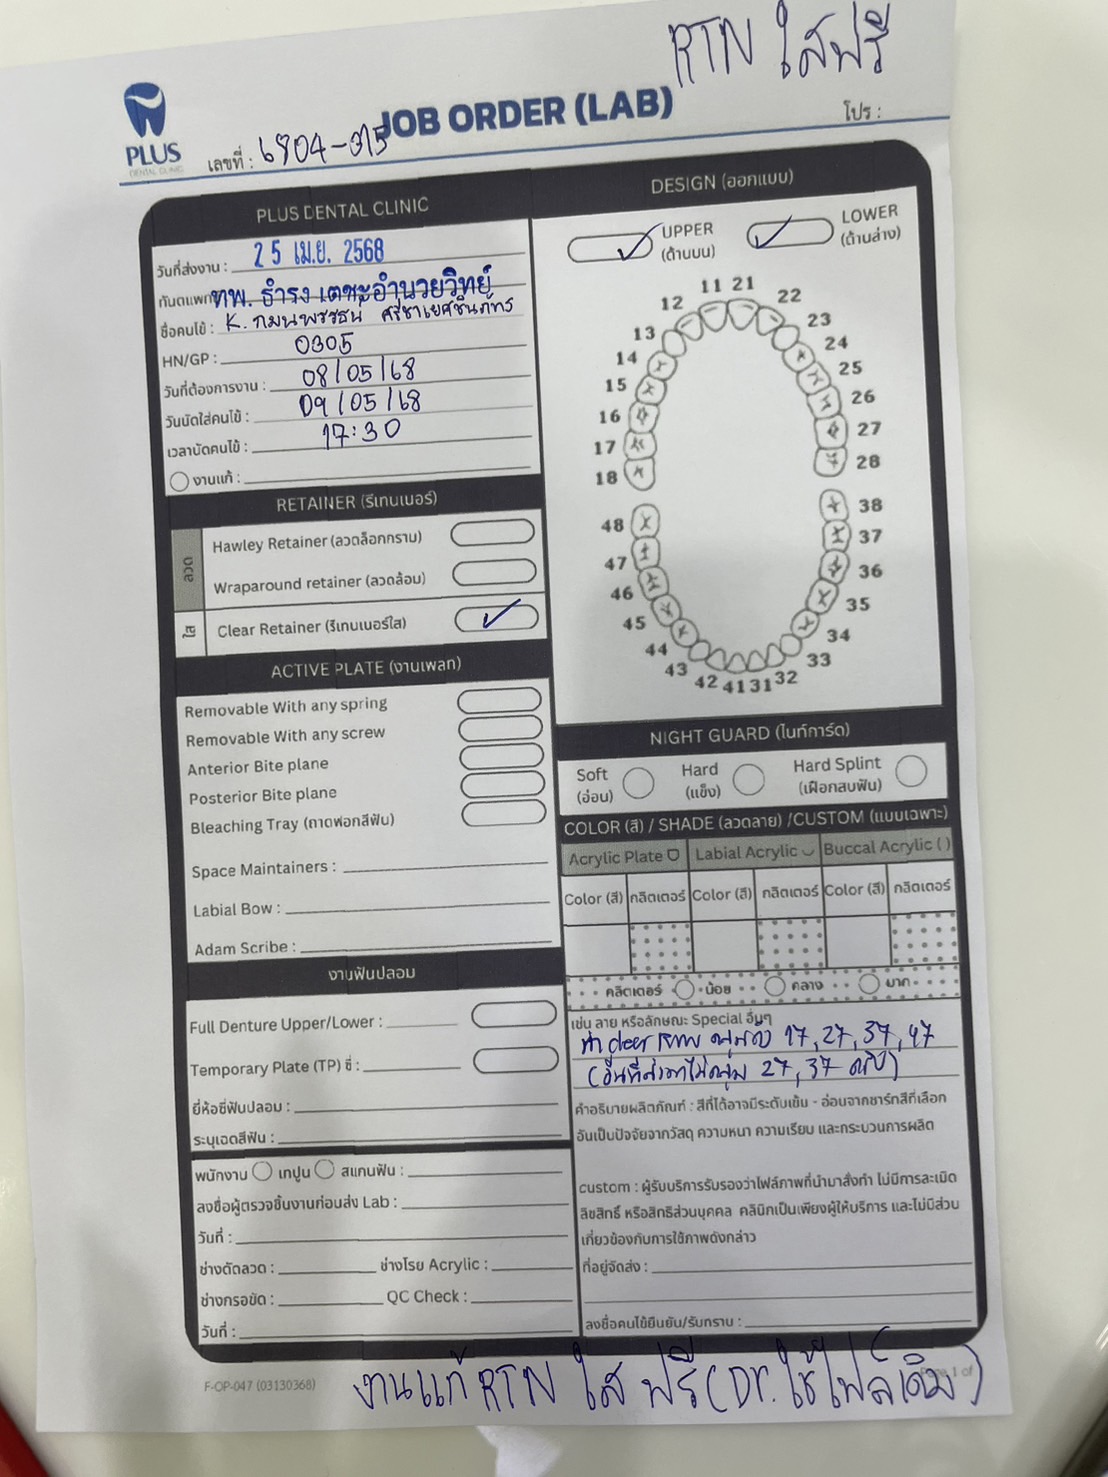 RTN ใสฟรี
PLUS
DENTAL CLINIC
JOB ORDER (LAB)
เลขที่ : 6804-015
โปร :
PLUS DENTAL CLINIC
วันที่ส่งงาน : 25 เม.ย. 2568
ทันตแพทย์ ทพ. ธำรง เตชะอำนวยวิทย์
ชื่อคนไข้ : K.
HN/GP : 0305
วันที่ต้องการงาน : 08/05/68
วันนัดใส่คนไข้ : 09/05/68
เวลานัดคนไข้ : 17:30
งานแก้ :
RETAINER (รีเทนเนอร์)
ลวด
Hawley Retainer (ลวดล็อกกราม)
Wraparound retainer (ลวดล้อม)
ใส
Clear Retainer (รีเทนเนอร์ใส) ✓
ACTIVE PLATE (งานเพลท)
Removable With any spring
Removable With any screw
Anterior Bite plane
Posterior Bite plane
Bleaching Tray (ถาดฟอกสีฟัน)
Space Maintainers :
Labial Bow :
Adam Scribe :
งานฟันปลอม
Full Denture Upper/Lower :
Temporary Plate (TP) ซี่ :
ยี่ห้อซี่ฟันปลอม :
ระบุเฉดสีฟัน :
พนักงาน เทปูน สแกนฟัน :
ลงชื่อผู้ตรวจชิ้นงานก่อนส่ง Lab :
วันที่ :
ช่างดัดลวด : ช่างโรย Acrylic :
ช่างกรอขัด : QC Check :
วันที่ :
DESIGN (ออกแบบ)
✓ UPPER (ด้านบน)
✓ LOWER (ด้านล่าง)
11 21
12 22
13 23
14 24
15 25
16 26
17 27
18 28
48 38
47 37
46 36
45 35
44 34
43 33
42 41 31 32
NIGHT GUARD (ไนท์การ์ด)
Soft (อ่อน)
Hard (แข็ง)
Hard Splint (เฝือกสบฟัน)
COLOR (สี) / SHADE (ลวดลาย) /CUSTOM (แบบเฉพาะ)
Acrylic Plate Labial Acrylic Buccal Acrylic ( )
Color (สี) กลิตเตอร์ Color (สี) กลิตเตอร์ Color (สี) กลิตเตอร์
กลิตเตอร์ น้อย กลาง มาก
เช่น ลาย หรือลักษณะ Special อื่นๆ
ทำ clear 17, 27, 37, 47
27, 37 ครับ)
คำอธิบายผลิตภัณฑ์ : สีที่ได้อาจมีระดับเข้ม - อ่อนจากชาร์ทสีที่เลือก
อันเป็นปัจจัยจากวัสดุ ความหนา ความเรียบ และกระบวนการผลิต
custom : ผู้รับบริการรับรองว่าไฟล์ภาพที่นำมาสั่งทำ ไม่มีการละเมิด
ลิขสิทธิ์ หรือสิทธิส่วนบุคคล คลินิกเป็นเพียงผู้ให้บริการ และไม่มีส่วน
เกี่ยวข้องกับการใช้ภาพดังกล่าว
ที่อยู่จัดส่ง :
ลงชื่อคนไข้ยืนยัน/รับทราบ :
F-OP-047 (03130368)
Page 1 of
งานแก้ RTN ใส ฟรี (Dr. ใช้ไฟล์เดิม)